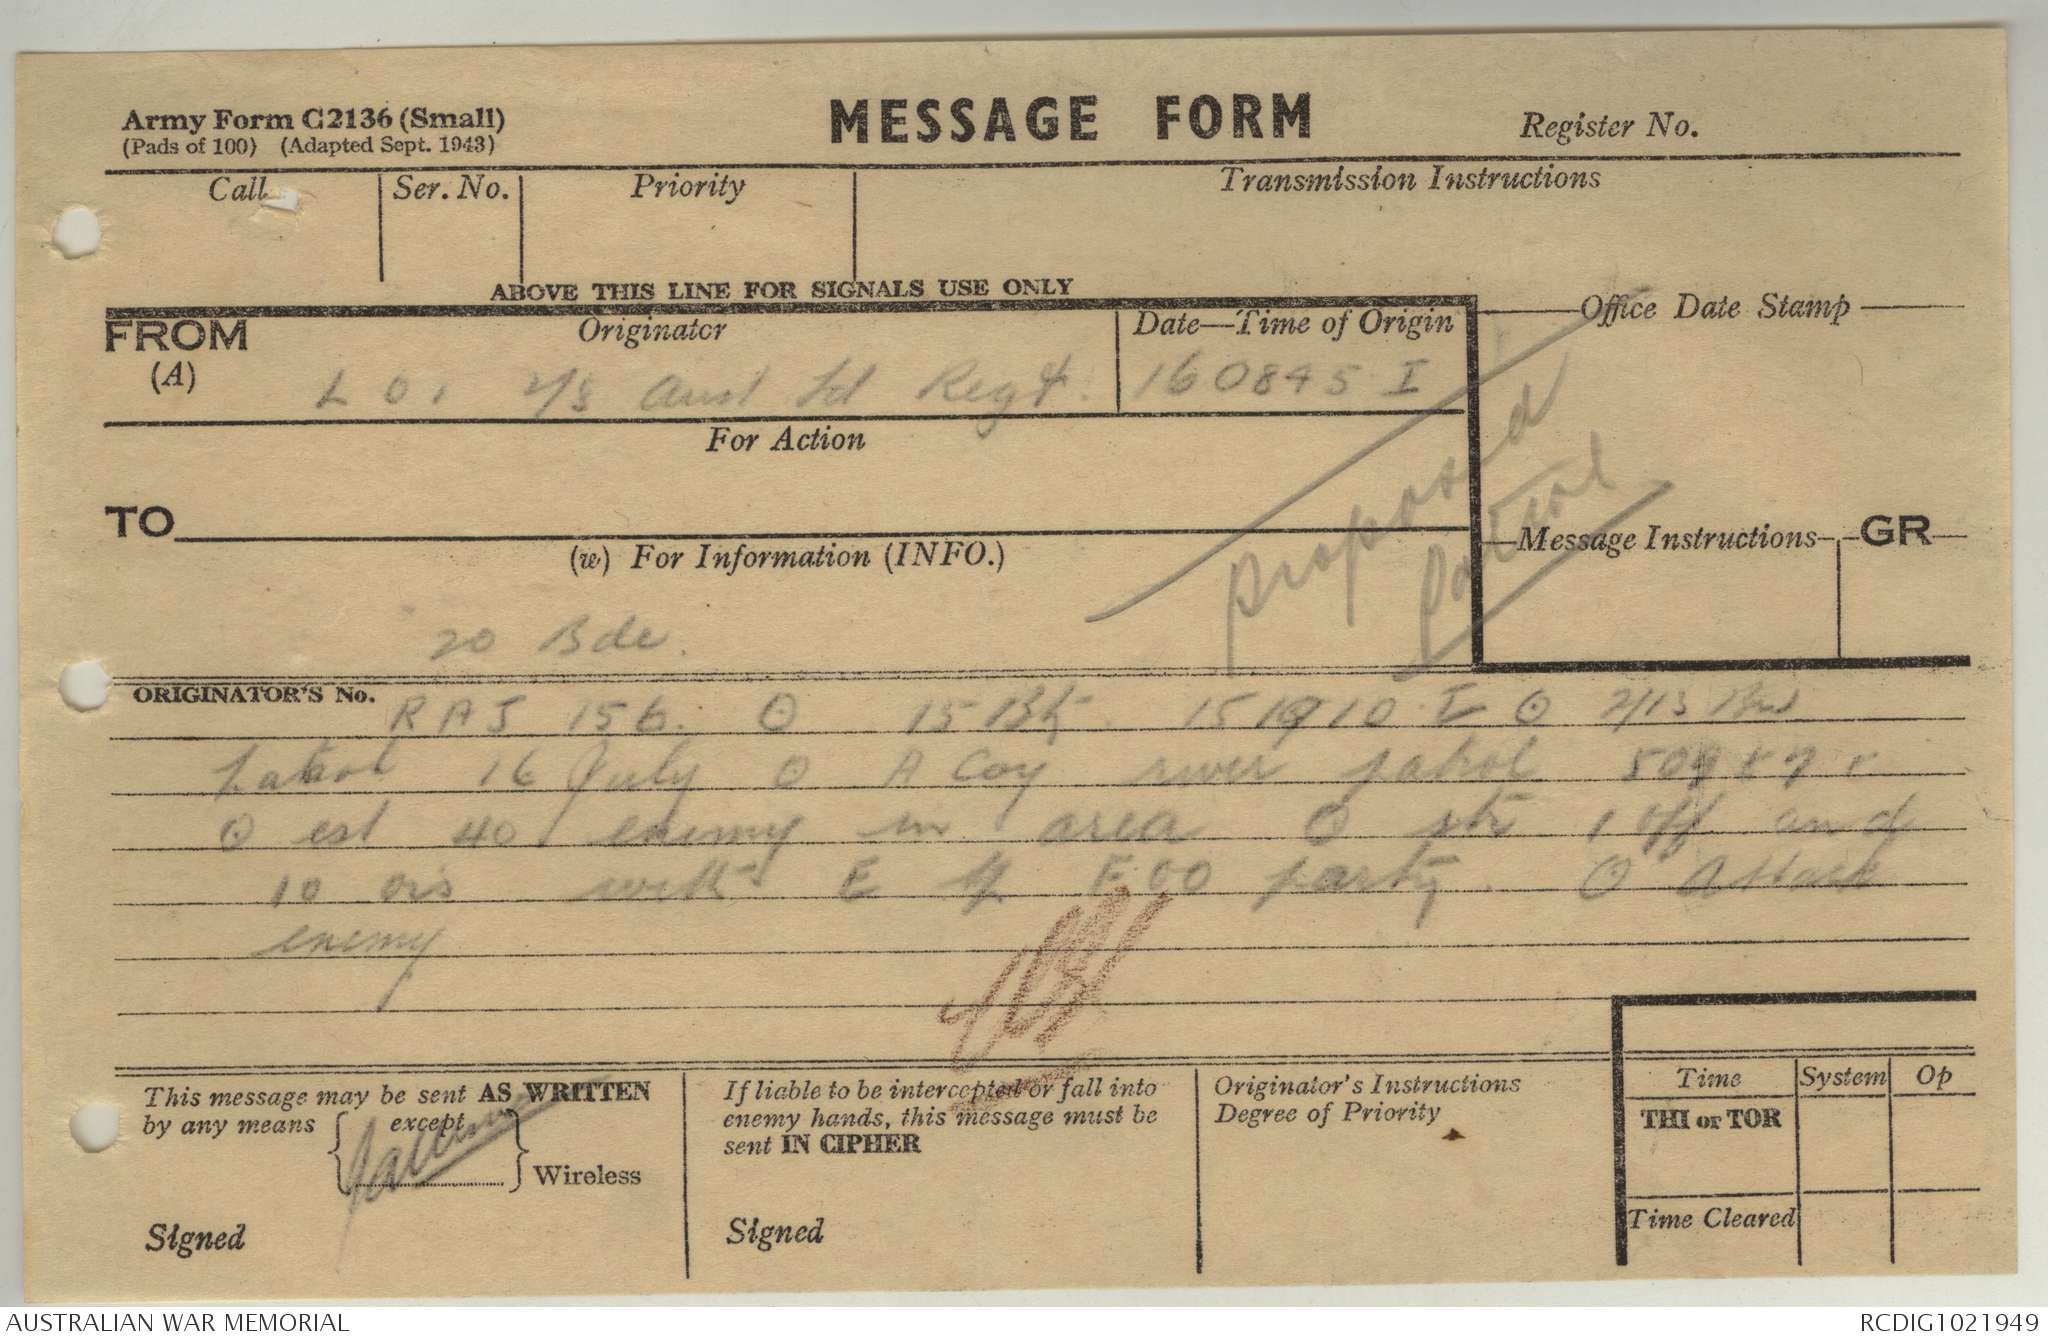 Army Form C2136 (Small)
(Pads of 100) (Adapted Sept. 1943)
MESSAGE FORM
Register No.
Call
Ser. No.
Priority
Transmission Instructions
ABOVE THIS LINE FOR SIGNALS USE ONLY
FROM
(A)
Originator
L O. 2/8 Aust Fd Regt.
Date—Time of Origin
160845 I
Office Date Stamp
For Action
TO
(w) For Information (INFO.)
20 Bde.
Proposed
Patrol
Message Instructions
GR
ORIGINATOR'S No.
RAJ 156. O 15 Bty. I O 2/13 Bn
Patrol 16 July O A Coy river patrol
O est 40 enemy in area O str 1 off and
10 ors with E Tp FOO party. O Attack
enemy
This message may be sent AS WRITTEN
by any means except
Wireless
Signed
If liable to be intercepted or fall into
enemy hands, this message must be
sent IN CIPHER
Signed
Originator's Instructions
Degree of Priority
Time
System
Op
THI or TOR
Time Cleared
AUSTRALIAN WAR MEMORIAL
RCDIG1021949